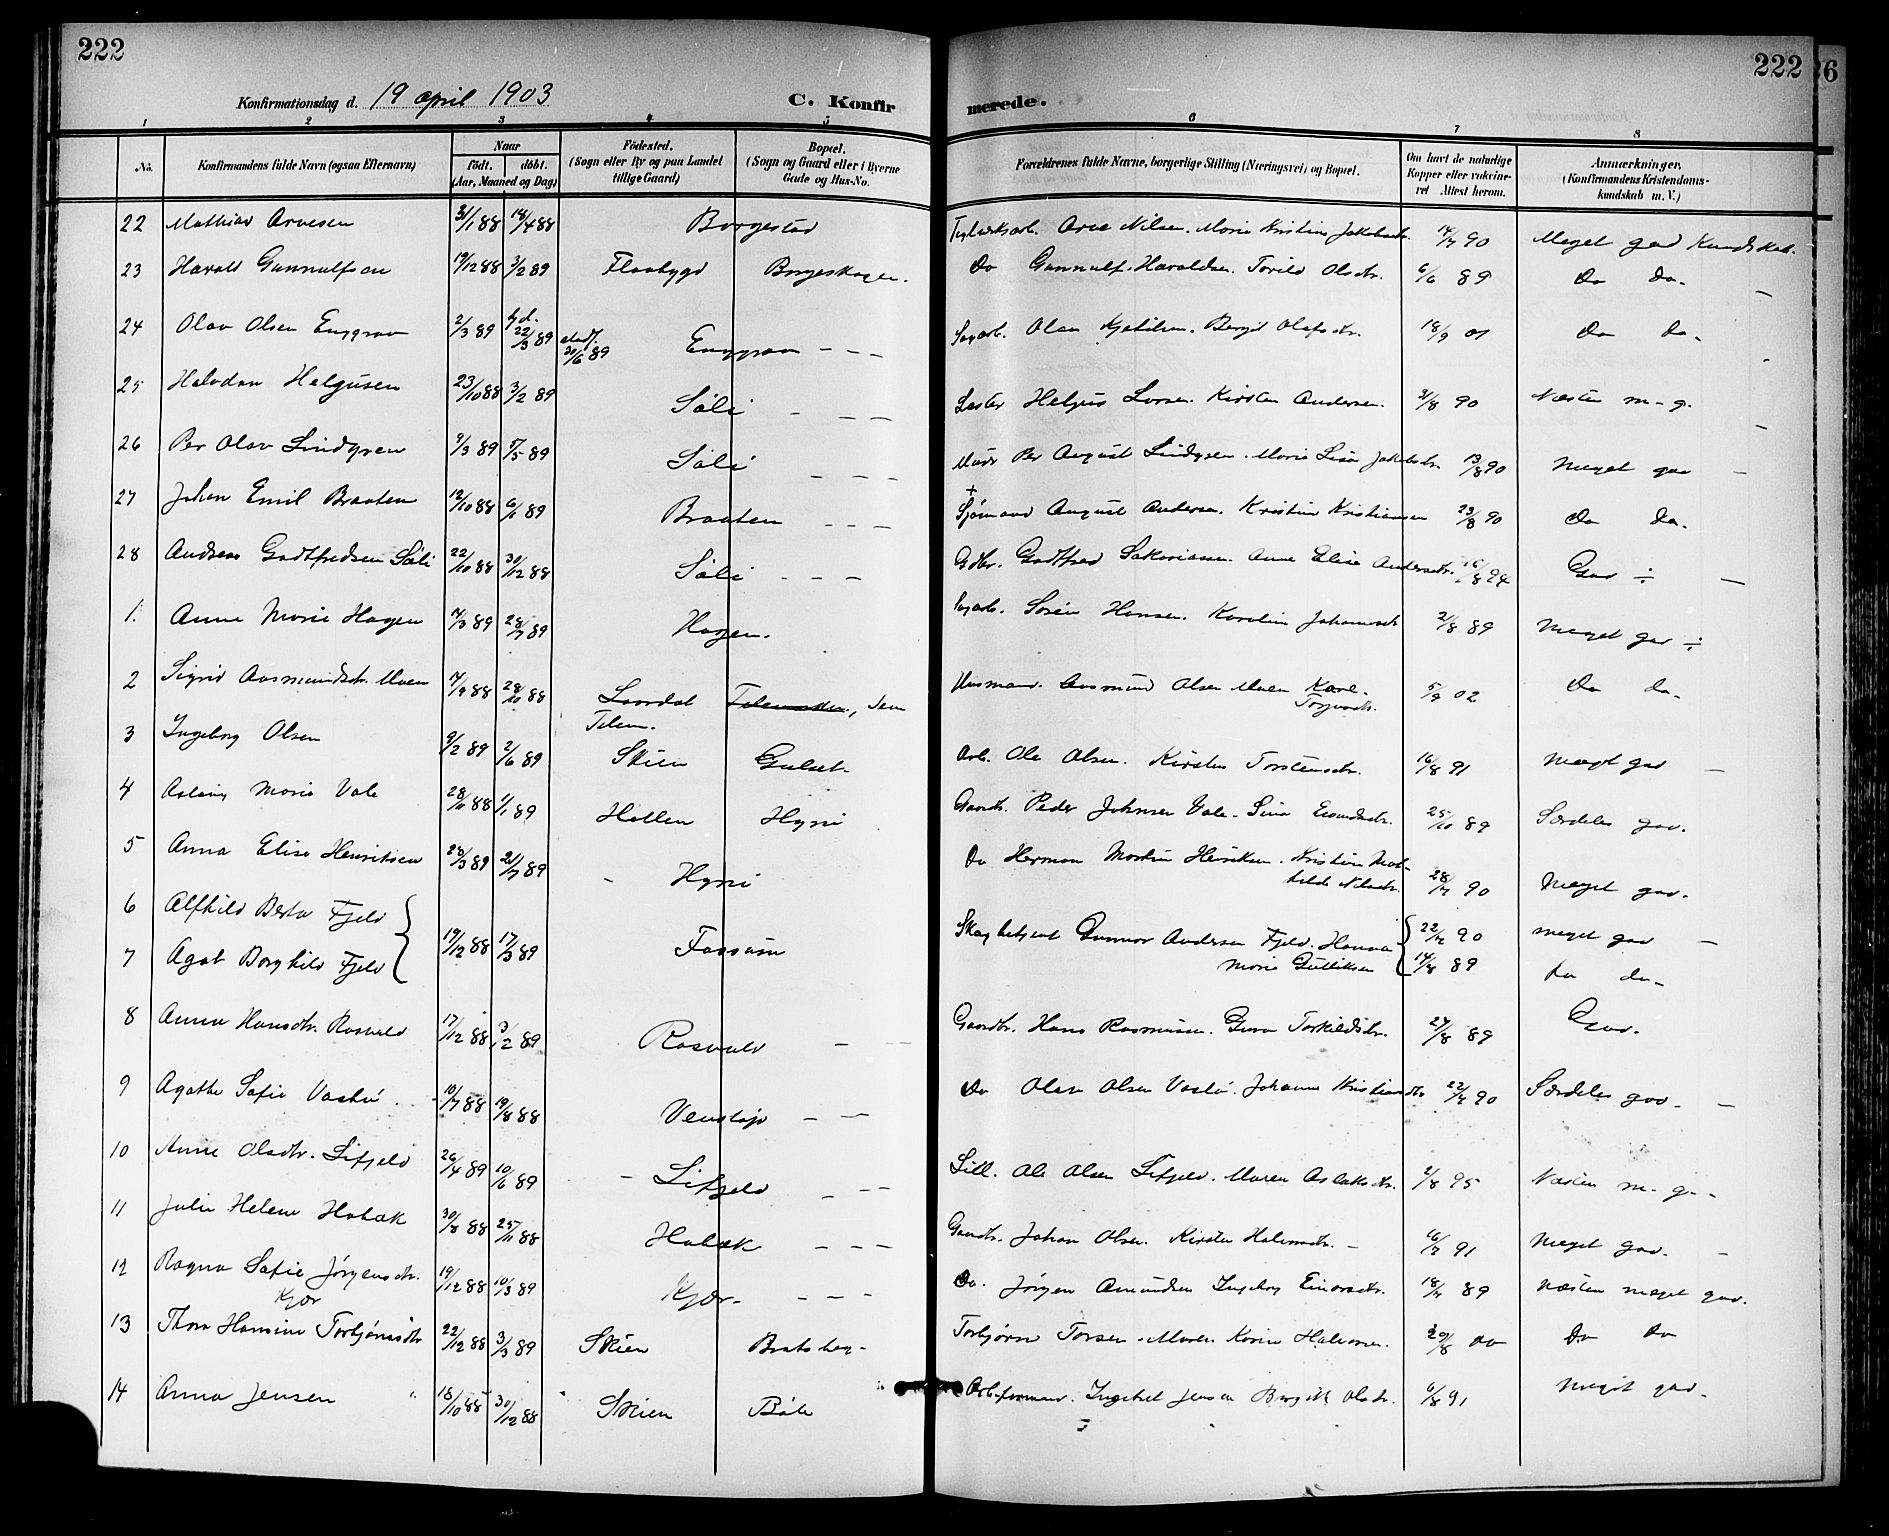 222
222
26
Konfirmationsdag d. 19 april 1903
C. Konfirmerede.
1 2 3 4 5 6 7 8
No. Konfirmandens fulde Navn (ogsaa Efternavn) Naar födt. döbt. (Aar, Maaned og Dag) Födested. (Sogn eller By og paa Landet tillige Gaard) Bopæl. (Sogn og Gaard eller i Byerne Gade og Hus-No. Forældrenes fulde Navne, borgerlige Stilling (Næringsvei) og Bopæl. Om havt de naturlige Kopper eller vakcineret Attest herom. Anmærkninger. (Konfirmandens Kristendomskundskab m. V.)
22 Mathias Arvesen 31/1 88 18/4 88 Borgestad Teglverksarb. Arve Nilsen. Marie Kristine Jakobsdtr. 14/7 90 Meget god Kundskab.
23 Harald Gunnulfsen 19/12 88 3/2 89 Flaabygd Borgeskogen. Do Gunnulf Haraldsen. Torild Olsdtr. 6/6 89 Do do. —
24 Olav Olsen Enggrav 2/3 89 hj.d. 22/3 89 stadf. 30/6 89 Enggrav - - - Sagarb. Olav Kjetilsen. Bergit Olafsdtr. 18/9 01 Do do.
25 Halvdan Helgesen 23/10 88 3/2 89 Sali - - - Helgus Larsen. Kirsten Andersen. 21/8 90 Næsten m-g. —
26 Per Olav Lindgren 9/3 89 5/5 89 Sali - - - Murer Per August Lindgren. Marie Lisa Jakobsdtr. 13/8 90 Meget god —
27 Johan Emil Braaten 12/10 88 6/1 89 Braaten - - - + Sjømand August Andersen. Kristine Kristiansen 23/8 90 Do do.
28 Andreas Godtfredsen Sali 22/10 88 30/12 88 Sali - - - Gdbr. Godtfred Sakariassen. Anne Elise Andersdtr. 16/8 94 God ÷ —
1. Anne Marie Hagen 7/3 89 28/7 89 Hagen. Sagarb. Søren Hansen. Karoline Johannesdtr 21/8 89 Meget god ÷
2 Sigrid Aasmundsdtr. Moen 14/9 88 28/10 88 Laardal Telem. Telemarken, Sem Husmand. Aasmund Olsen Moen Kari Torjusdtr. 5/9 02 Do do.
3 Ingeborg Olsen 9/2 89 2/6 89 Skien Gulset. Arb. Ole Olsen. Kirsten Torstensdtr. 16/8 91 Meget god —
4 Aslaug Marie Vale 28/10 88 1/1 89 Hollen Hyni Gaardb. Peder Johnsen Vale. 25/10 89 Særdeles god.
5 Anna Elise Henriksen 28/3 89 21/7 89 - Hyni Do Herman Martin Henriksen. Kristine Mathilde Nilsdtr. 28/7 90 Meget god.
6 Alfhild Berta Fjeld
7 Agot Borghild Fjeld 19/12 88 17/3 89 Fossum Skogbetjent Gunnar Andersen Fjeld. Hanna Marie Gulliksen 22/7 90 meget god — 14/8 89 Do do.
8 Anna Hansdtr. Rasvald 17/12 88 3/2 89 Rasvald - - Gaardbr. Hans Rasmussen. Guro Torkildsdtr. 27/8 89 God.
9 Agathe Sofie Vastvei. 10/7 88 19/8 88 Venstøp - - Do Olav Olsen. Johanne Kristiansdtr 22/7 90 Særdeles god. —
10 Anne Olsdtr. Lifjeld 26/4 89 10/6 89 - Lifjeld - - - Sell. Ole Olsen Lifjeld. Maren Aslaksdtr. 2/8 95 Næsten m. g. -
11 Julie Helene Hobæk 30/8 88 25/11 88 Hobæk - - - Gaardb. Johan Olsen. Kirsten Halvorsdtr. - 16/7 91 Meget god. —
12 Ragna Sofie Jørgensdtr. Kjær 19/12 88 10/3 89 Kjær - - - Do. Jørgen Amundsen Ingeborg Einarsdtr. 18/7 89 Næsten meget god.
13 Thora Hansine Torbjørnsdtr 22/12 88 3/3 89 Skien Bratsberg- Torbjørn Torsen. Maren Karine Halvorsen. 29/8 00 Do do
14 Anna Jensen 18/10 88 30/12 88 Skien Bøle Arb.formand. Ingebret Jensen Bergit Olsdtr. 6/8 91 Meget god.